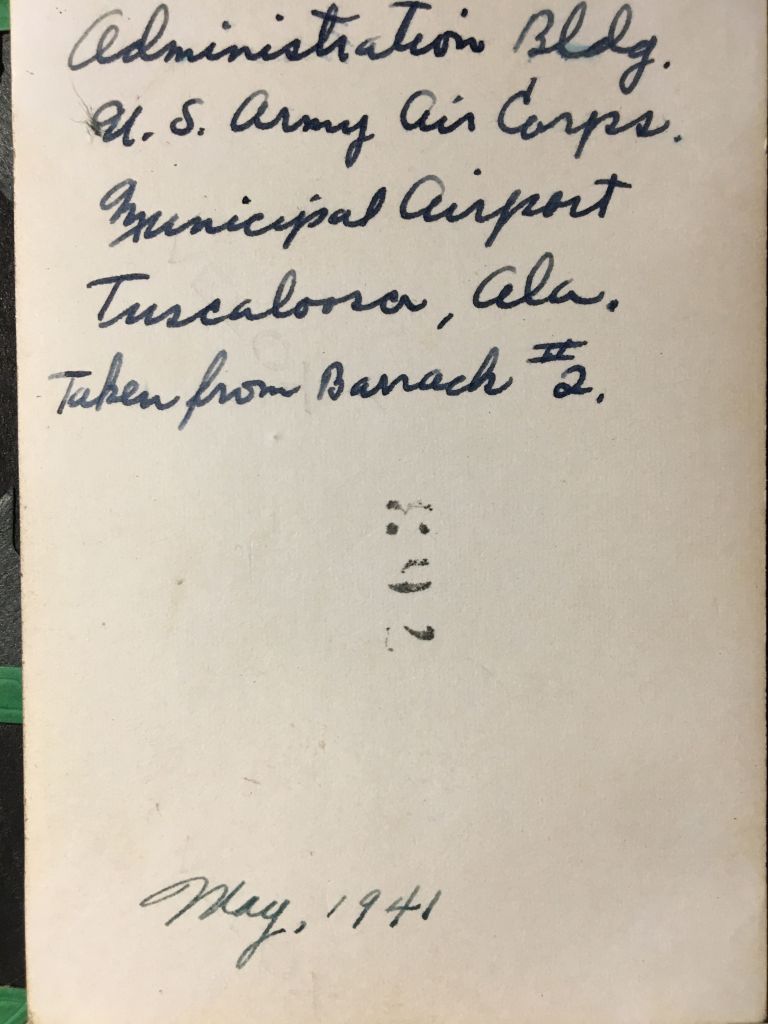 Administration Bldg.
U. S. Army Air Corps.
Municipal Airport
Tuscaloosa, Ala.
Taken from Barrack #2.
May, 1941